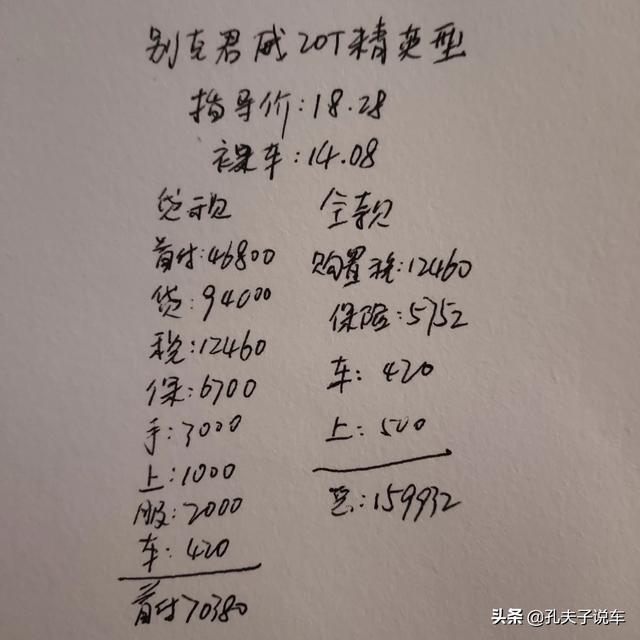 别克君威20T精英型
指导价:18.28
裸车:14.08
贷款
首付:46800
贷:94000
税:12460
保:6700
手:3000
上:1000
服:2000
车:420
首付70380
全款
购置税:12460
保险:5752
车:420
上:500
总:159932
头条 @孔夫子说车